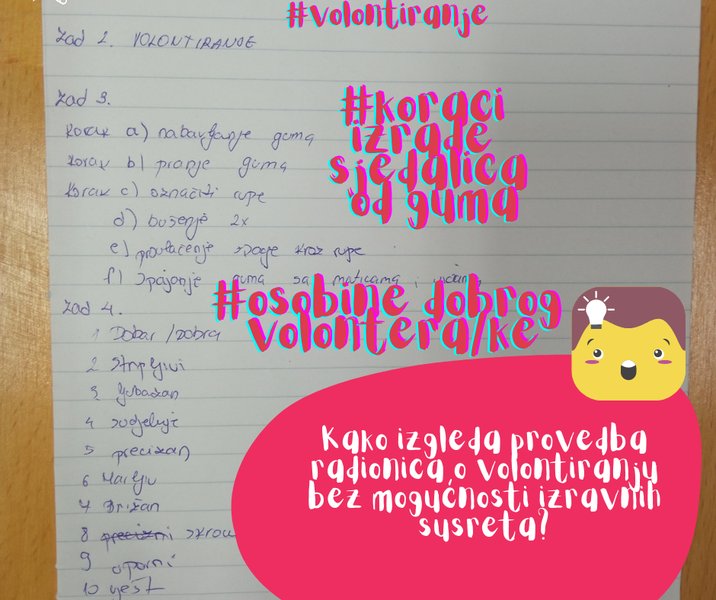 #volontiranje
Zad 2. VOLONTIRANJE
Zad 3.
#koraci
izrade
sjedalica
od guma
korak a) nabavljanje guma
korak b) pranje guma
korak c) označiti rupe
d) bušenje 2x
e) provlačenje špage kroz rupe
f) Spajanje guma sa maticama i
#osobine dobrog
volontera/ke
Zad 4.
1 Dobar / dobra
2 Strpljivi
3 ljubazan
4 sudjeluje
5 precizan
6 Marljiv
7 Brižan
8 precizni
9 uporni
10 vješt
Kako izgleda provedba
radionica o volontiranju
bez mogućnosti izravnih
susreta?